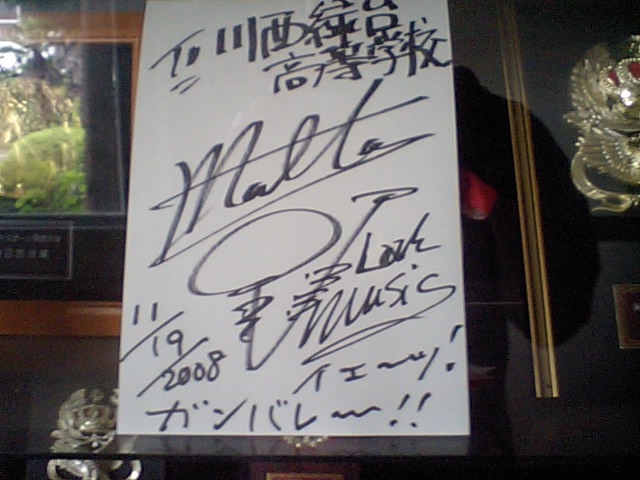 To 川西緑台
高等学校
Malta
Love
Music
11/19/2008
イェ〜ッ!
ガンバレ〜!!